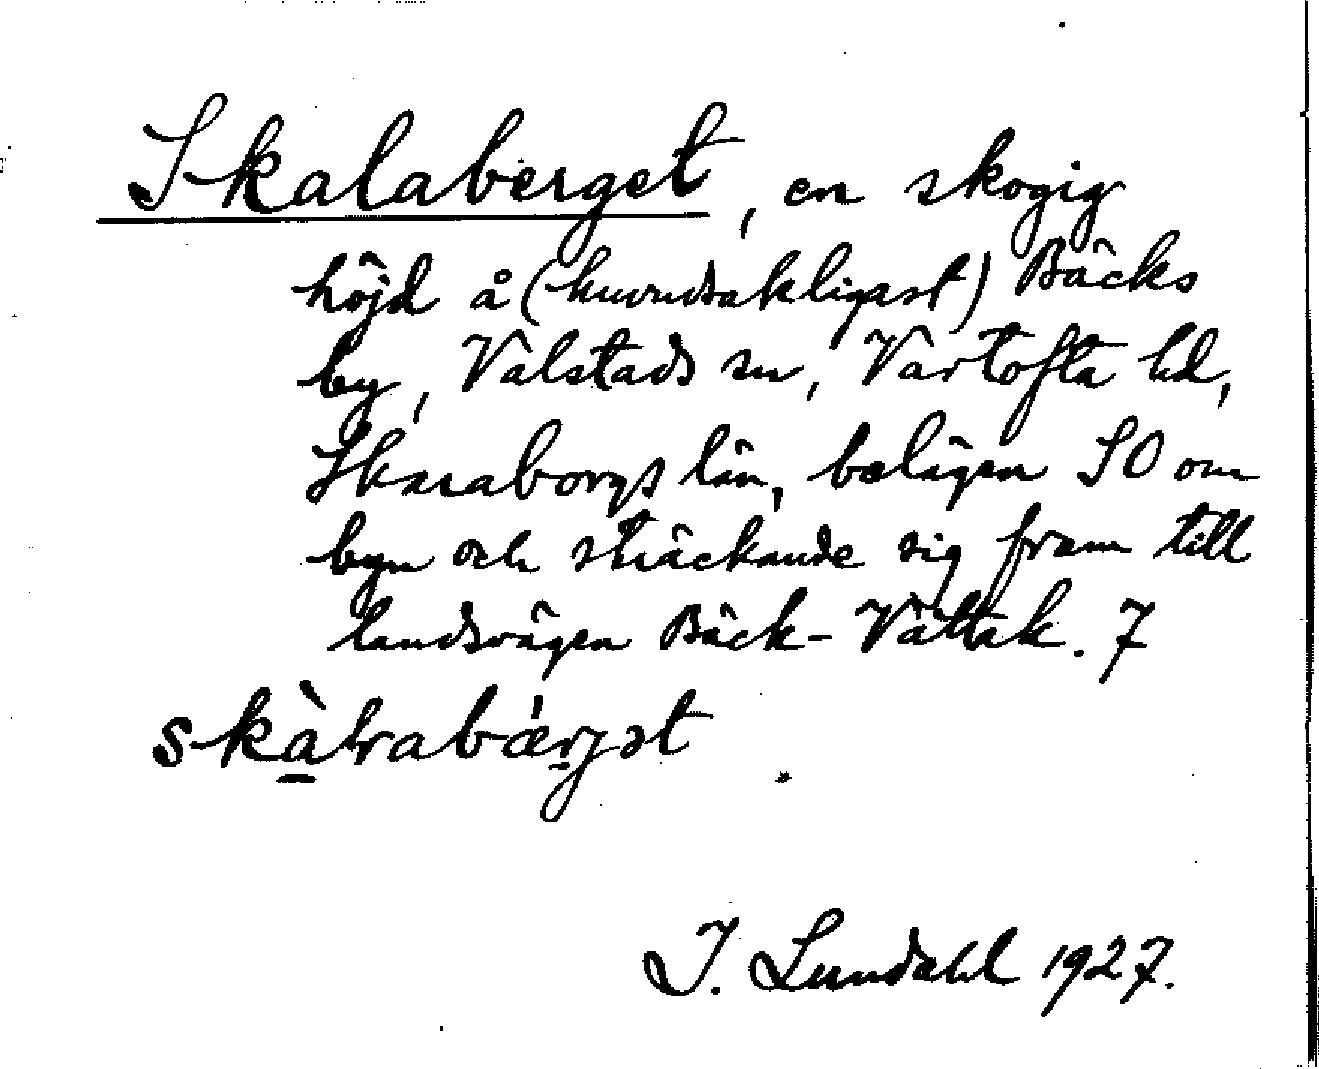 Skalaberget, en skogig
höjd å (huvudsakligast) Bäcks
by, Valstads sn, Vartofta hd,
Skaraborgs län, belägen SO om
byn och sträckande sig fram till
landsvägen Bäck-Vättak. 7
skàlrabǽrjət
I. Lundahl 1927.